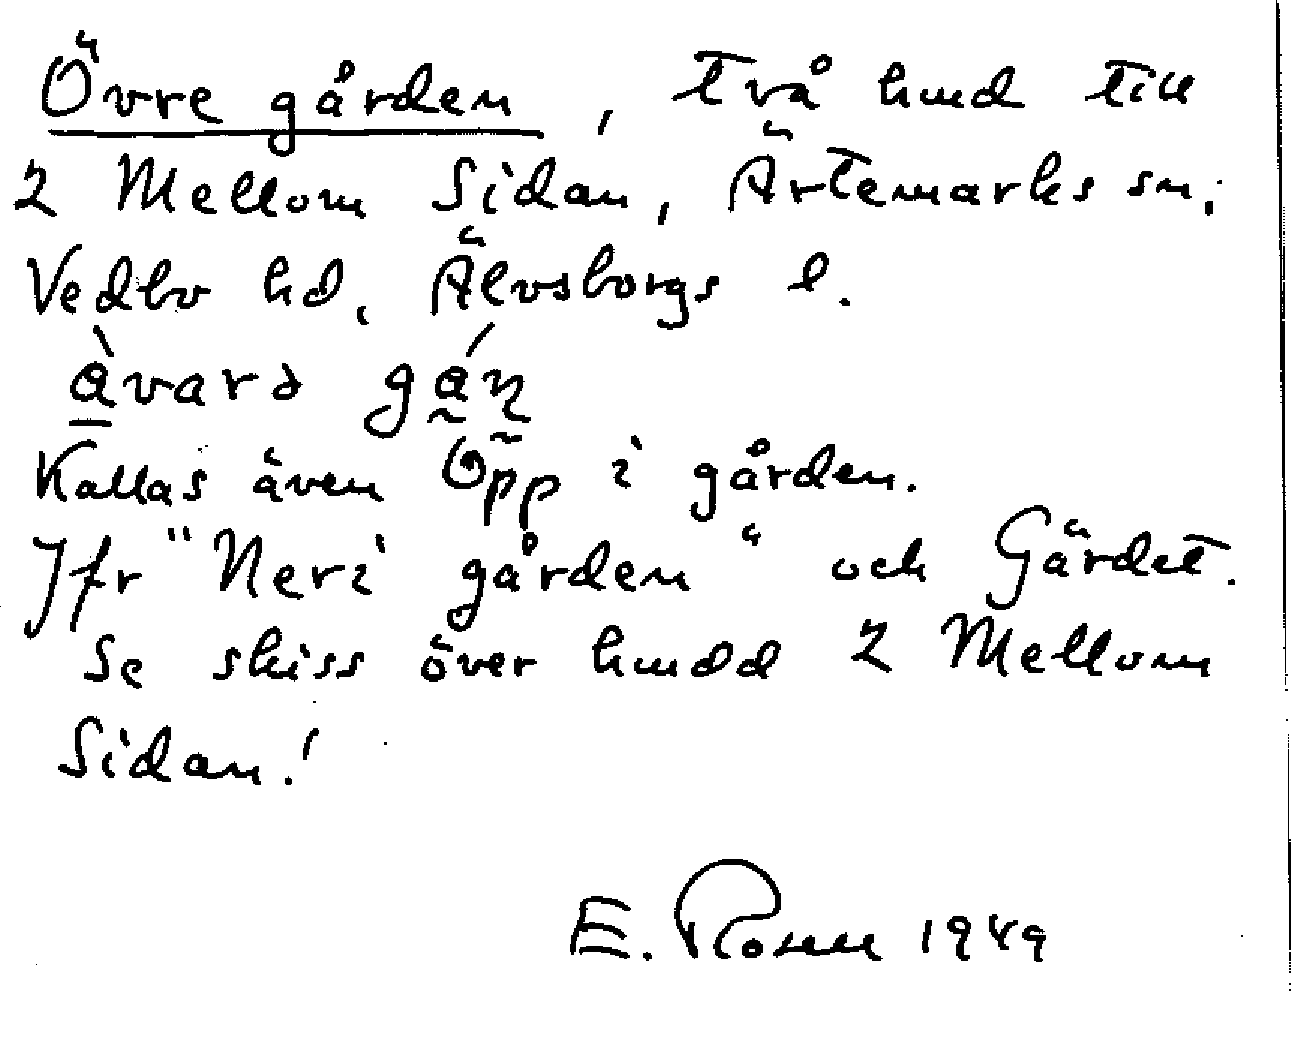 Övre gården, två hmd till
2 Mellom Sidan, Ärtemarks sn,
Vedbo hd, Älvsborgs l.
àvarə gáɳ
Kallas även Opp i gården.
Jfr "Neri gården" och Gärdet.
Se skiss över hmdd 2 Mellom
Sidan!
E. Rosen 1949